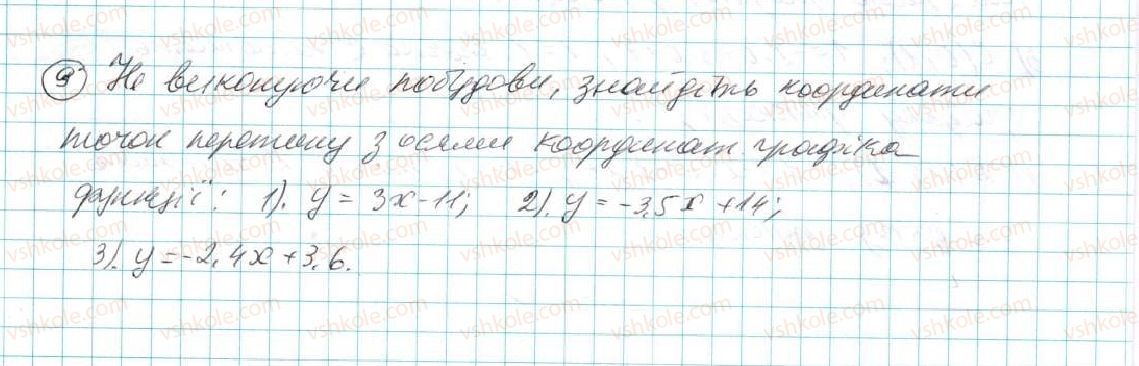 9 Не виконуючи побудови, знайдіть координати
точок перетину з осями координат графіка
функції: 1). y = 3x - 11; 2). y = -3,5x + 14;
3). y = -2,4x + 3,6.
vshkole.com